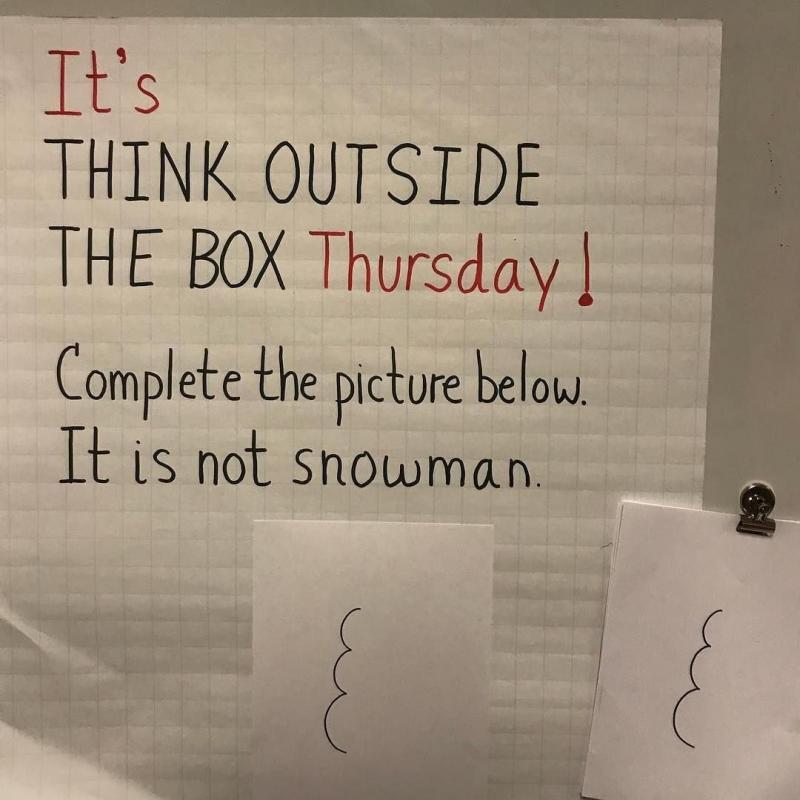 It's
THINK OUTSIDE
THE BOX Thursday!
Complete the picture below.
It is not snowman.